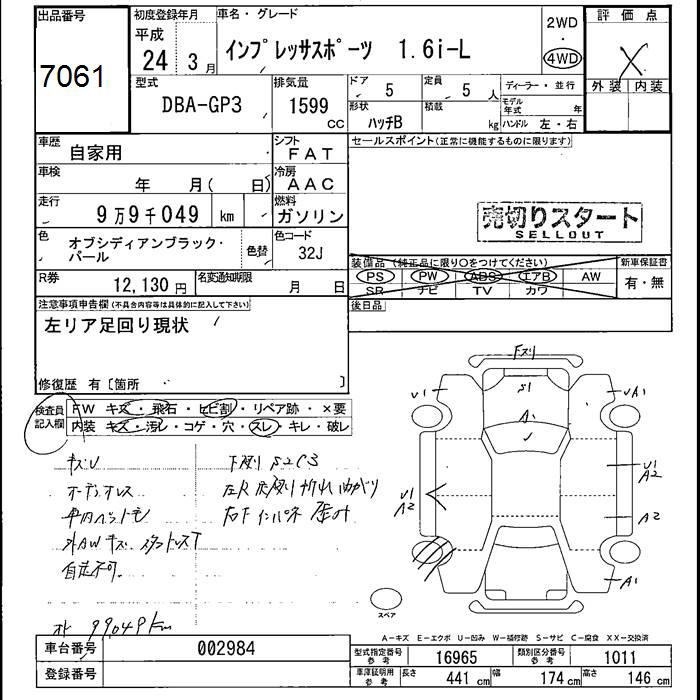 出品番号
7061
初度登録年月
平成
24 年 3 月
車名・グレード
インプレッサスポーツ 1.6i-L
2WD
・
4WD
評価点
X
外装 内装
型式
DBA-GP3
排気量
1599
CC
ドア
5
定員
5 人
形状
ハッチB
積載
kg
ディーラー・並行
モデル年式 年
ハンドル 左・右
車歴
自家用
シフト
FAT
車検
年 月( 日)
冷房
AAC
走行
9万9千049 km
燃料
ガソリン
色
オブシディアンブラック・パール
色替
色コード
32J
R券
12,130 円
名変通知期限
月 日
セールスポイント(正常に機能するものに限ります)
売切りスタート
SELLOUT
装備品(純正品に限り○をつけてください)
PS PW ABS エアB AW
SR ナビ TV カワ
新車保証書
有・無
後日品
注意事項申告欄(不具合内容等は具体的に記入して下さい)
左リア足回り現状
修復歴 有〔箇所 〕
検査員記入欄
FW キズ・飛石・ヒビ割・リペア跡・×要
内装 キズ・汚レ・コゲ・穴・スレ・キレ・破レ
キズU
下廻り S2C3
オーディオレス
自走不可
99049km
S1
A1
U1
UA1
U1
A2
U1
A2
A2
A1
スペア
A-キズ E-エクボ U-凹み W-補修跡 S-サビ C-腐食 XX-交換済
車台番号
002984
登録番号
型式指定番号
参考
16965
類別区分番号
参考
1011
車庫証明用
参考
長さ
441 cm
幅
174 cm
高さ
146 cm